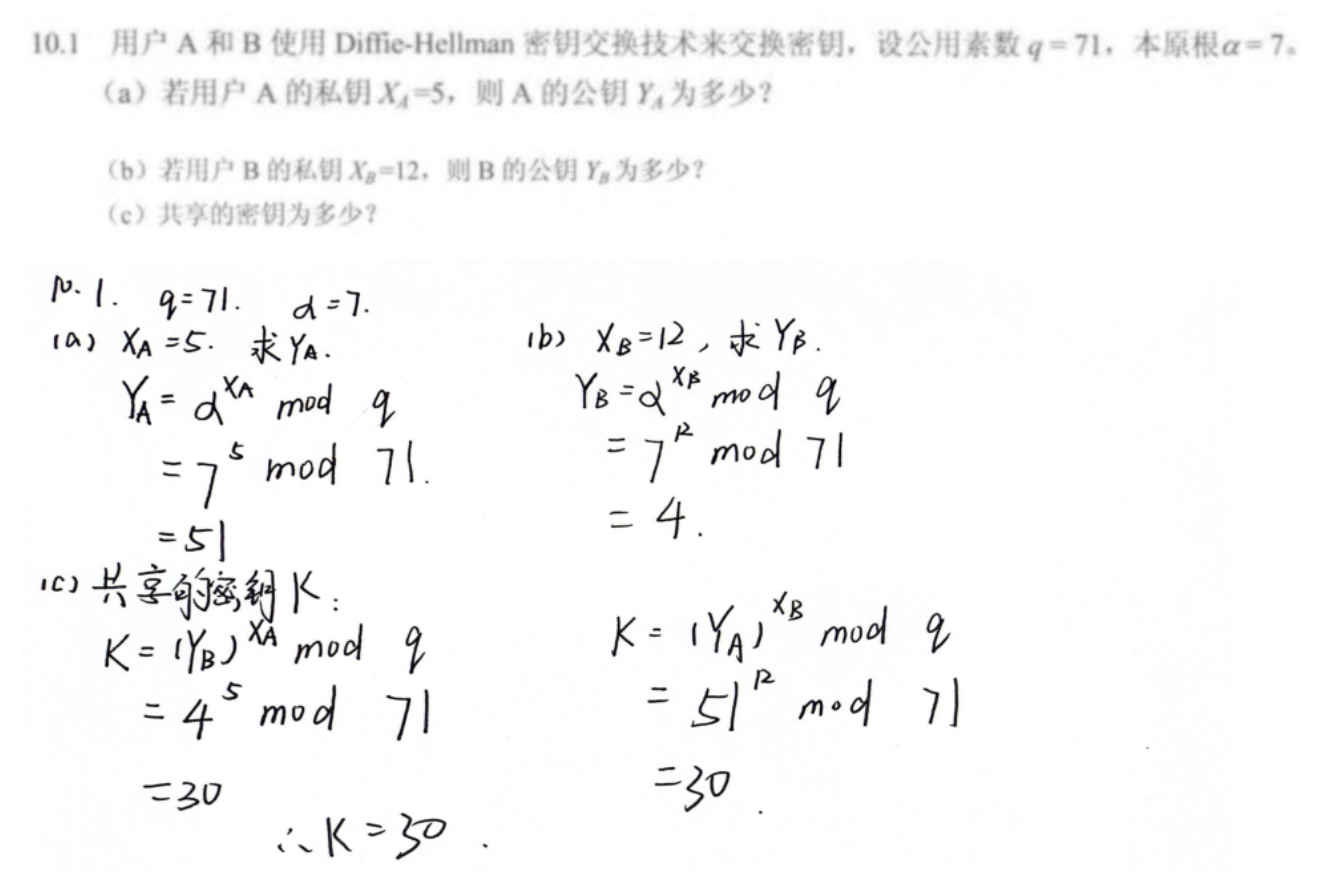 10.1 用户 A 和 B 使用 Diffie-Hellman 密钥交换技术来交换密钥，设公用素数 q = 71，本原根α = 7。
（a）若用户 A 的私钥 X_A=5，则 A 的公钥 Y_A 为多少？
（b）若用户 B 的私钥 X_B=12，则 B 的公钥 Y_B 为多少？
（c）共享的密钥为多少？
10.1. q=71. α=7.
(a) X_A=5. 求Y_A.
Y_A = α^{X_A} mod q
= 7^5 mod 71.
=51
(b) X_B=12, 求Y_B.
Y_B=α^{X_B} mod q
= 7^{12} mod 71
= 4.
(c) 共享的密钥K:
K= (Y_B)^{X_A} mod q
= 4^5 mod 71
=30
K= (Y_A)^{X_B} mod q
= 51^{12} mod 71
=30.
∴K=30.